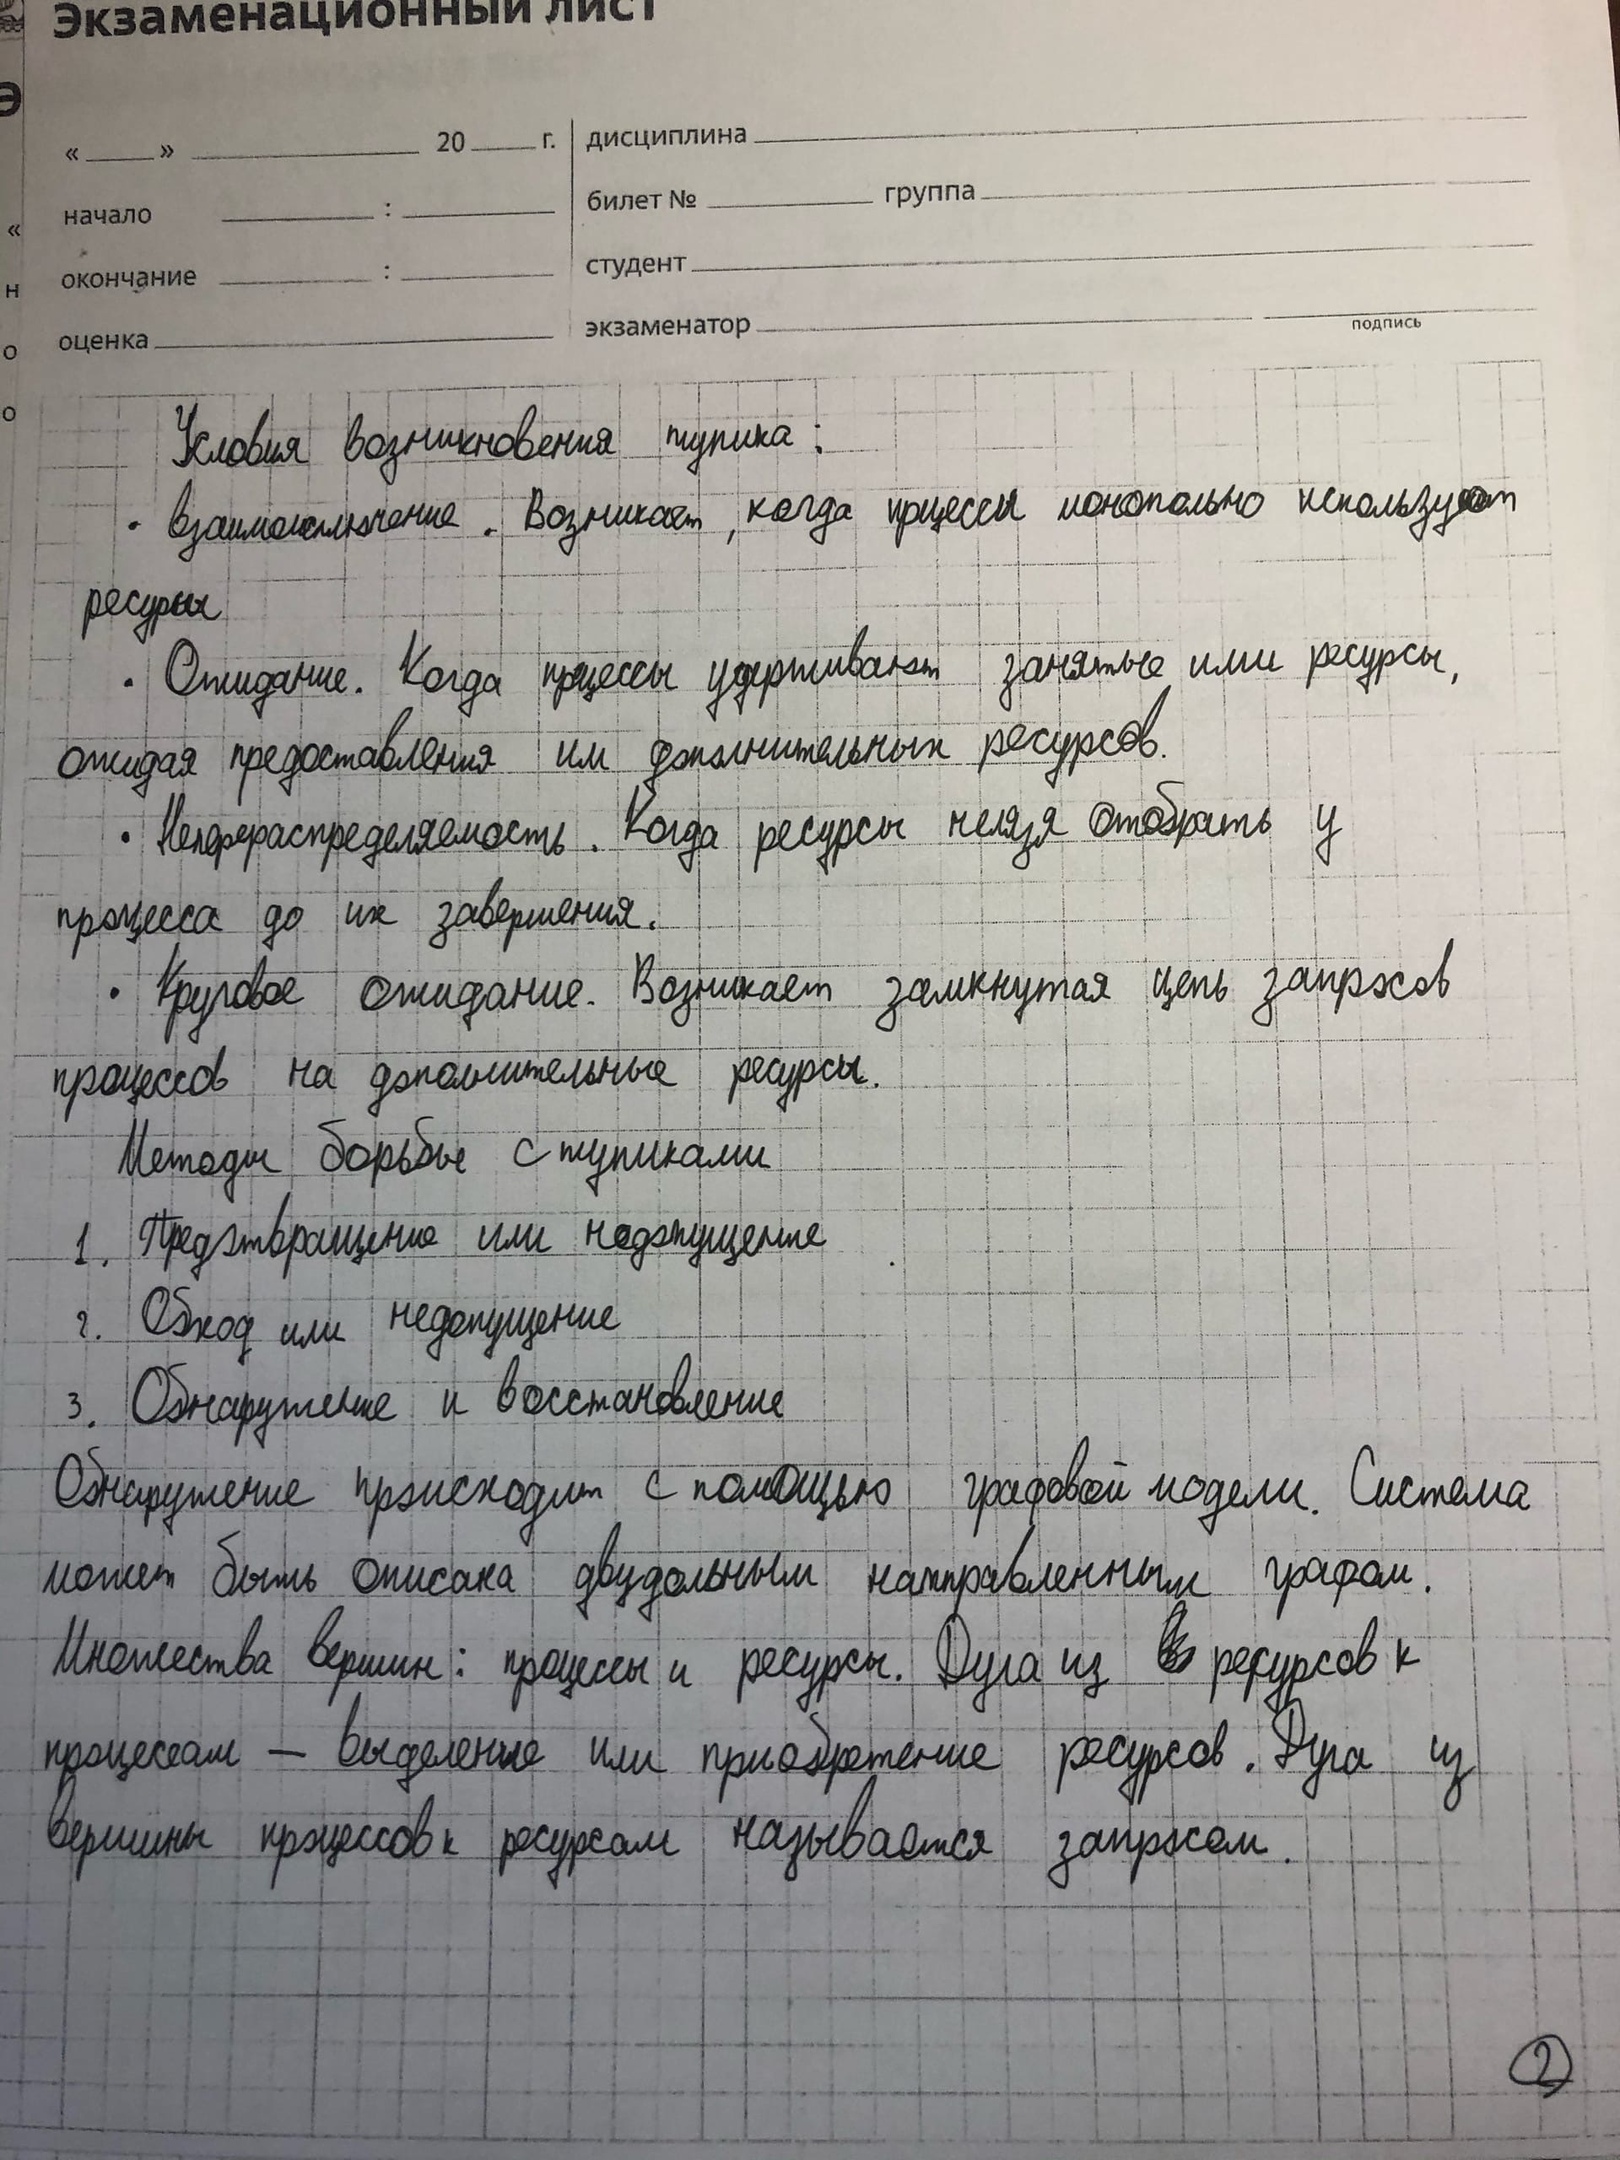 Экзаменационный лист
« » 20 г. дисциплина
начало : билет № группа
окончание : студент
оценка экзаменатор
подпись
Условия возникновения тупика:
• Взаимоисключение. Возникает, когда процессы монопольно используют
ресурсы
• Ожидание. Когда процессы удерживают занятые ими ресурсы,
ожидая предоставления им дополнительных ресурсов.
• Неперераспределяемость. Когда ресурсы нелязя отобрать у
процесса до их завершения.
• Круговое ожидание. Возникает замкнутая цепь запросов
процессов на дополнительные ресурсы.
Методы борьбы с тупиками
1. Предотвращение или недопущение
2. Обход или недопущение
3. Обнаружение и восстановление
Обнаружение происходит с помощью графовой модели. Система
может быть описана двудольным направленным графом.
Множества вершин: процессы и ресурсы. Дуга из ресурсов к
процессам — выделение или приобретение ресурсов. Дуга из
вершины процессов к ресурсам называется запросом.
2